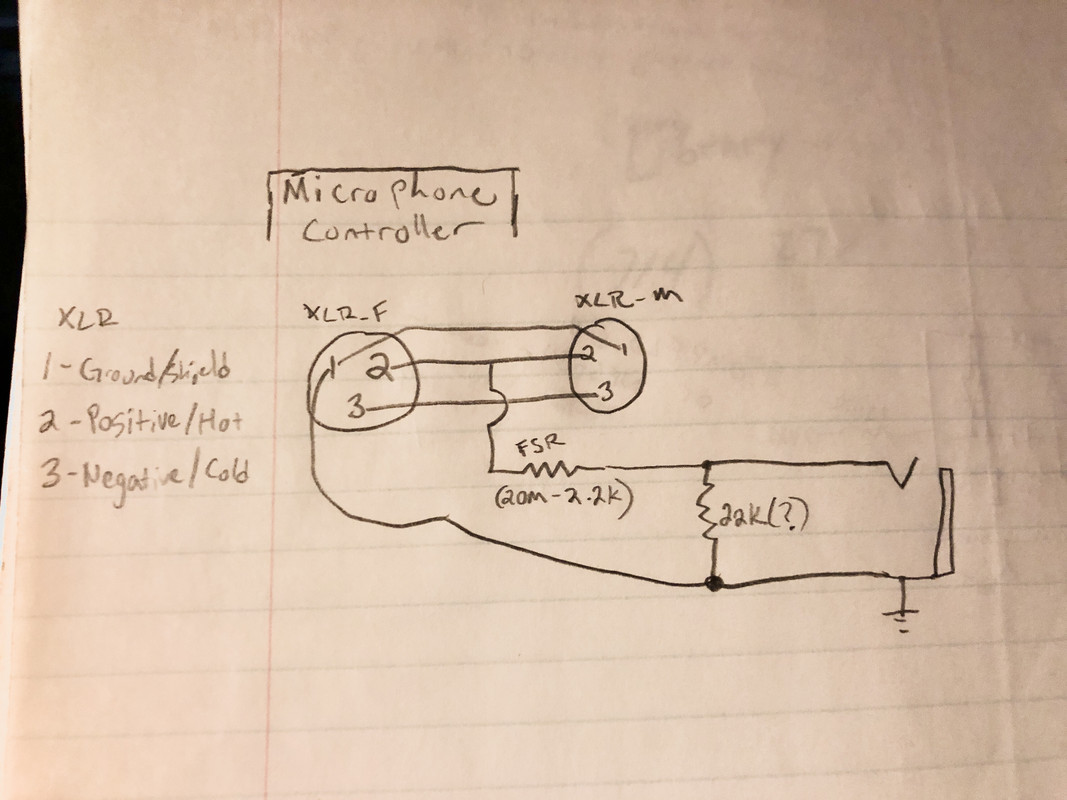 Microphone
Controller
XLR
1-Ground/Shield
2-Positive/Hot
3-Negative/Cold
XLR-F
1
2
3
XLR-m
2
1
3
FSR
(20m-2.2K)
22K(?)